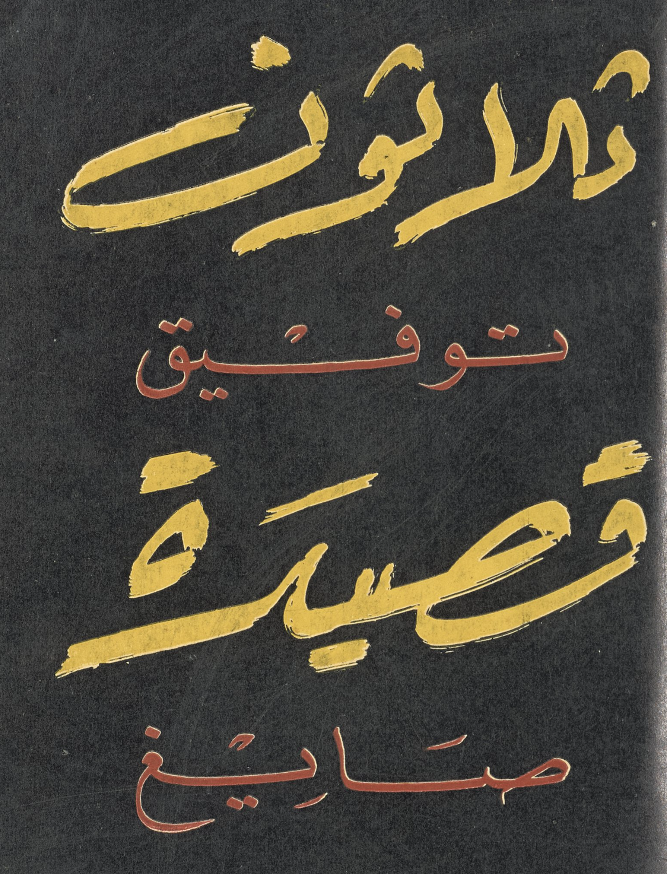 ثلاثون
توفيق
قصيدة
صَايِغ